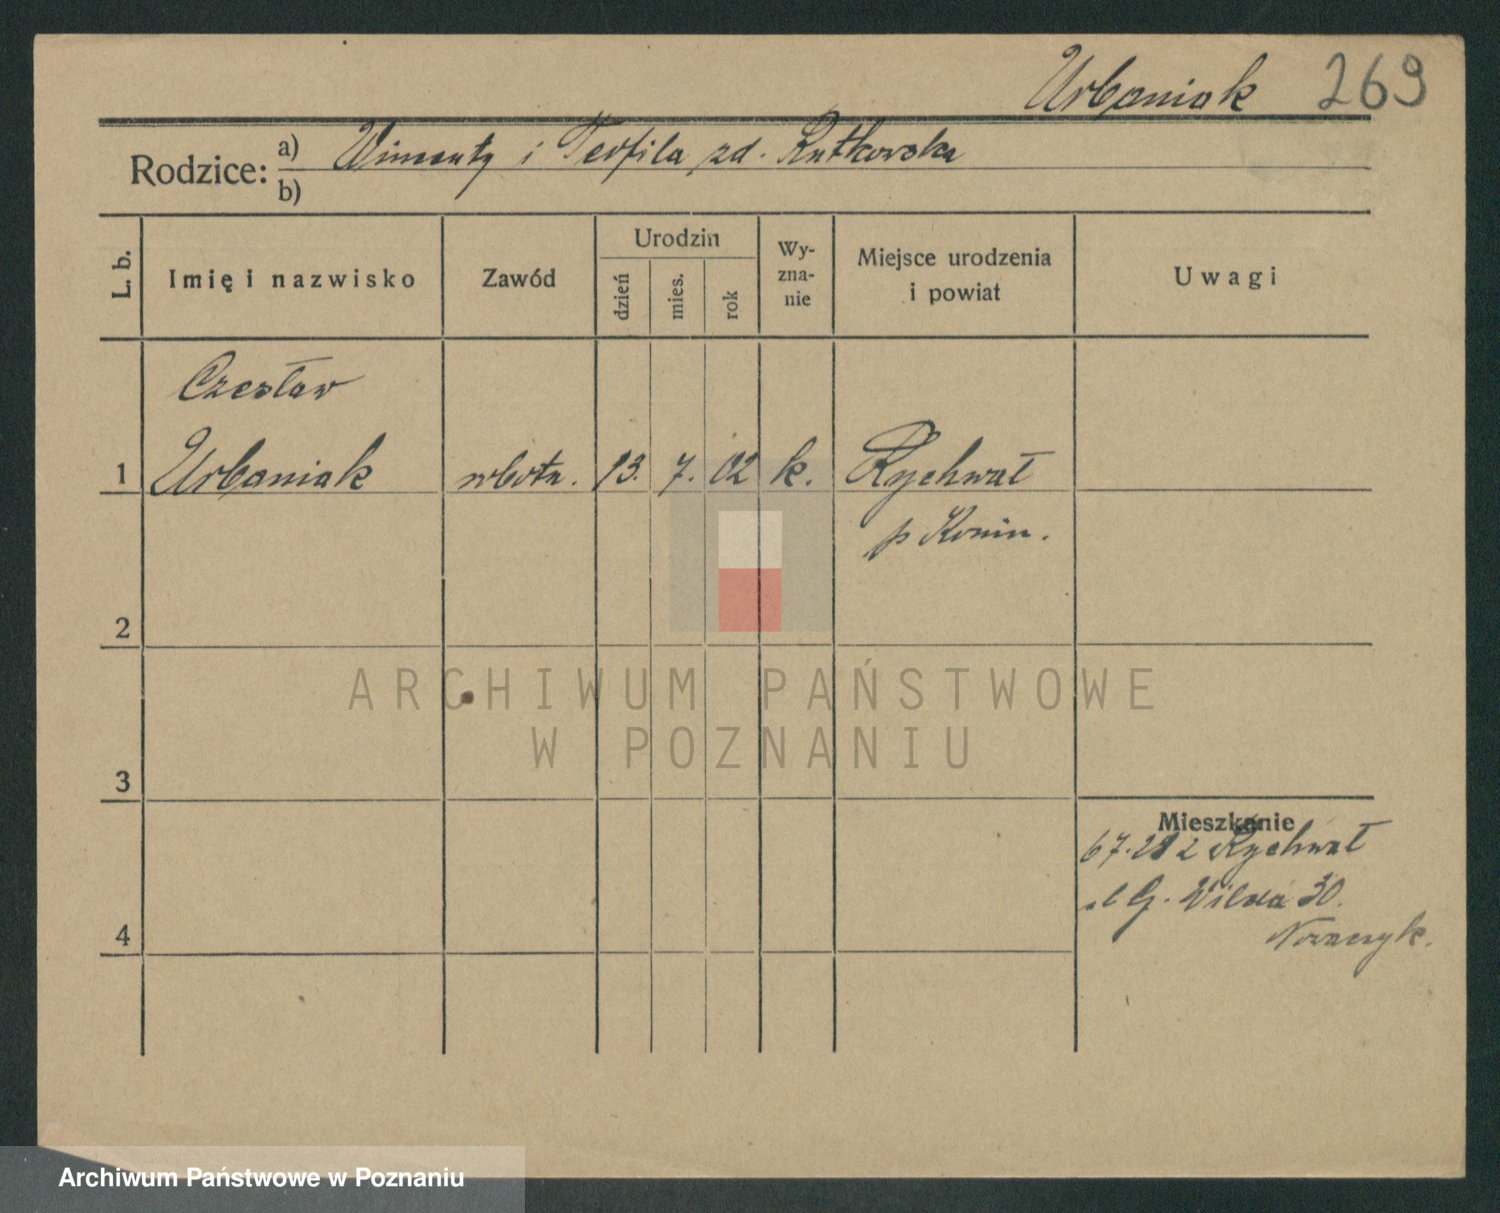 Urbaniak 269
Rodzice: a) Wincenty i Teofila zd. Rutkowska
b)
L. b. Imię i nazwisko Zawód Urodzin dzień mies. rok Wy-zna-nie Miejsce urodzenia i powiat Uwagi
Czesław
1 Urbaniak robotn. 13. 7. 02 k. Rychwał
p Konin.
2
ARCHIWUM PAŃSTWOWE
W POZNANIU
3
Mieszkanie
Rychwał
G. Wilda 30.
4
Archiwum Państwowe w Poznaniu